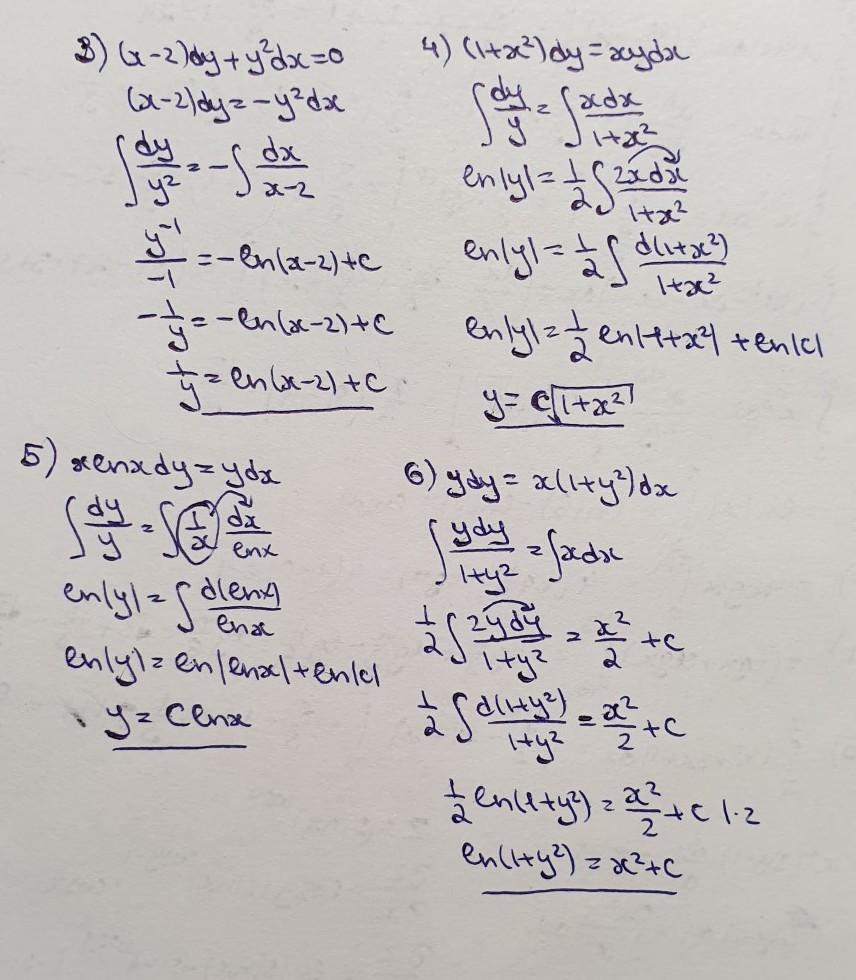 3) (x-2)dy+y²dx=0
(x-2)dy=-y²dx
∫dy/y²=-∫dx/(x-2)
y⁻¹/-1=-ln(x-2)+c
-1/y=-ln(x-2)+c
1/y=ln(x-2)+c
4) (1+x²)dy=xydx
∫dy/y=∫xdx/(1+x²)
ln|y|=1/2∫2xdx/(1+x²)
ln|y|=1/2∫d(1+x²)/(1+x²)
ln|y|=1/2 ln|1+x²|+ln|c|
y=c√(1+x²)
5) xlnxdy=ydx
∫dy/y=∫1/x dx/lnx
ln|y|=∫d(lnx)/lnx
ln|y|=ln|lnx|+ln|c|
y=Clnx
6) ydy=x(1+y²)dx
∫ydy/(1+y²)=∫xdx
1/2∫2ydy/(1+y²)=x²/2+c
1/2∫d(1+y²)/(1+y²)=x²/2+c
1/2ln(1+y²)=x²/2+c |·2
ln(1+y²)=x²+c